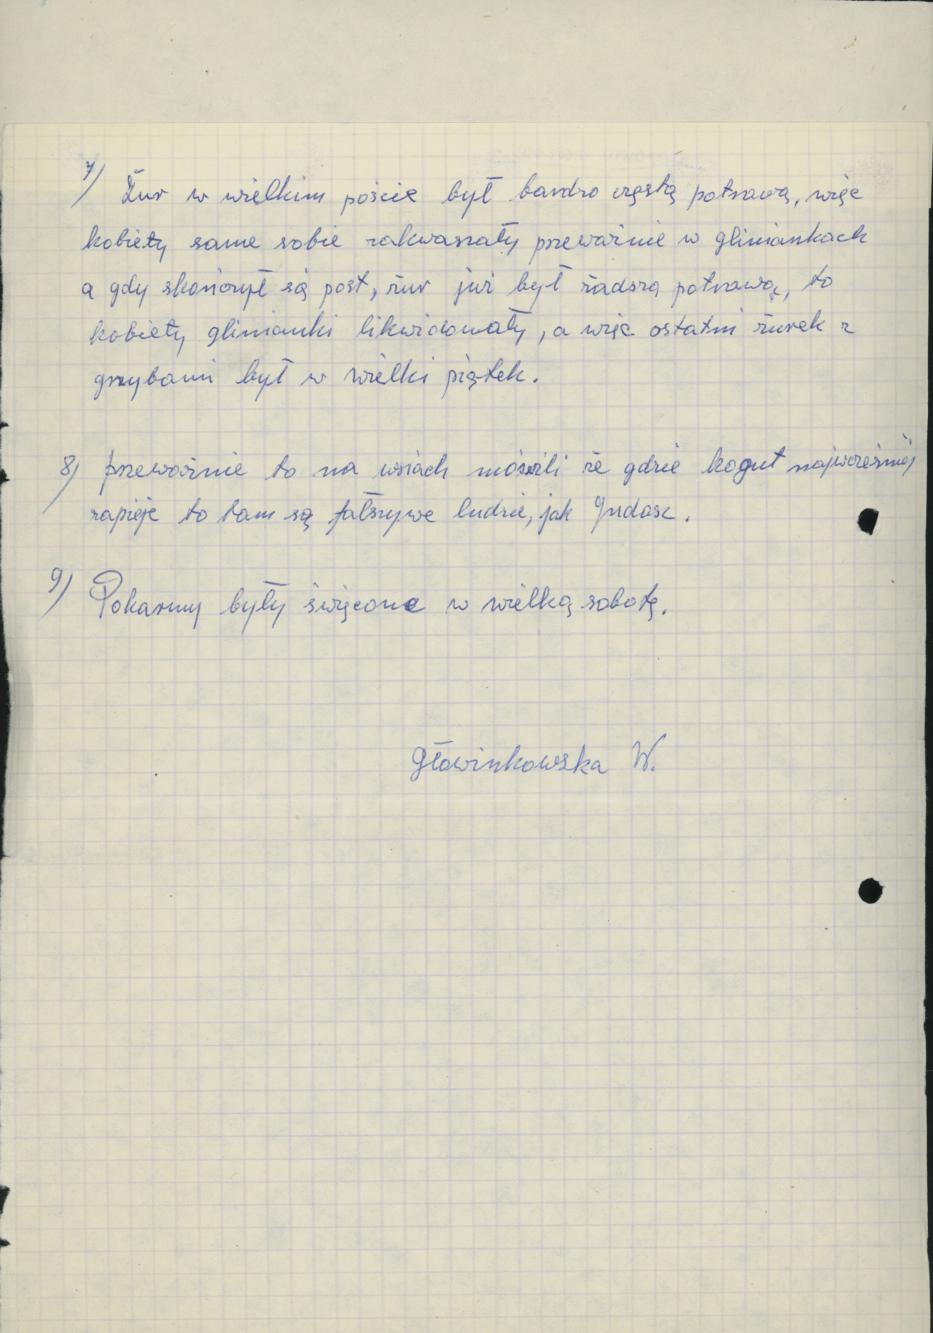 7) Żur w wielkim poście był bardzo częstą potrawą, więc
kobiety same sobie zakwaszały przeważnie w gliniankach
a gdy skończył są post, żur już był żadszą potrawą, to
kobiety glinianki likwidowały, a więc ostatni żurek z
grzybami był w wielki piątek.
8) przeważnie to na wsiach mówili że gdzie kogut najwcześniej
zapieje to tam są fałszywe ludzie, jak Judasz.
9) Pokarmy były święcone w wielką sobotę.
Głowinkowska W.